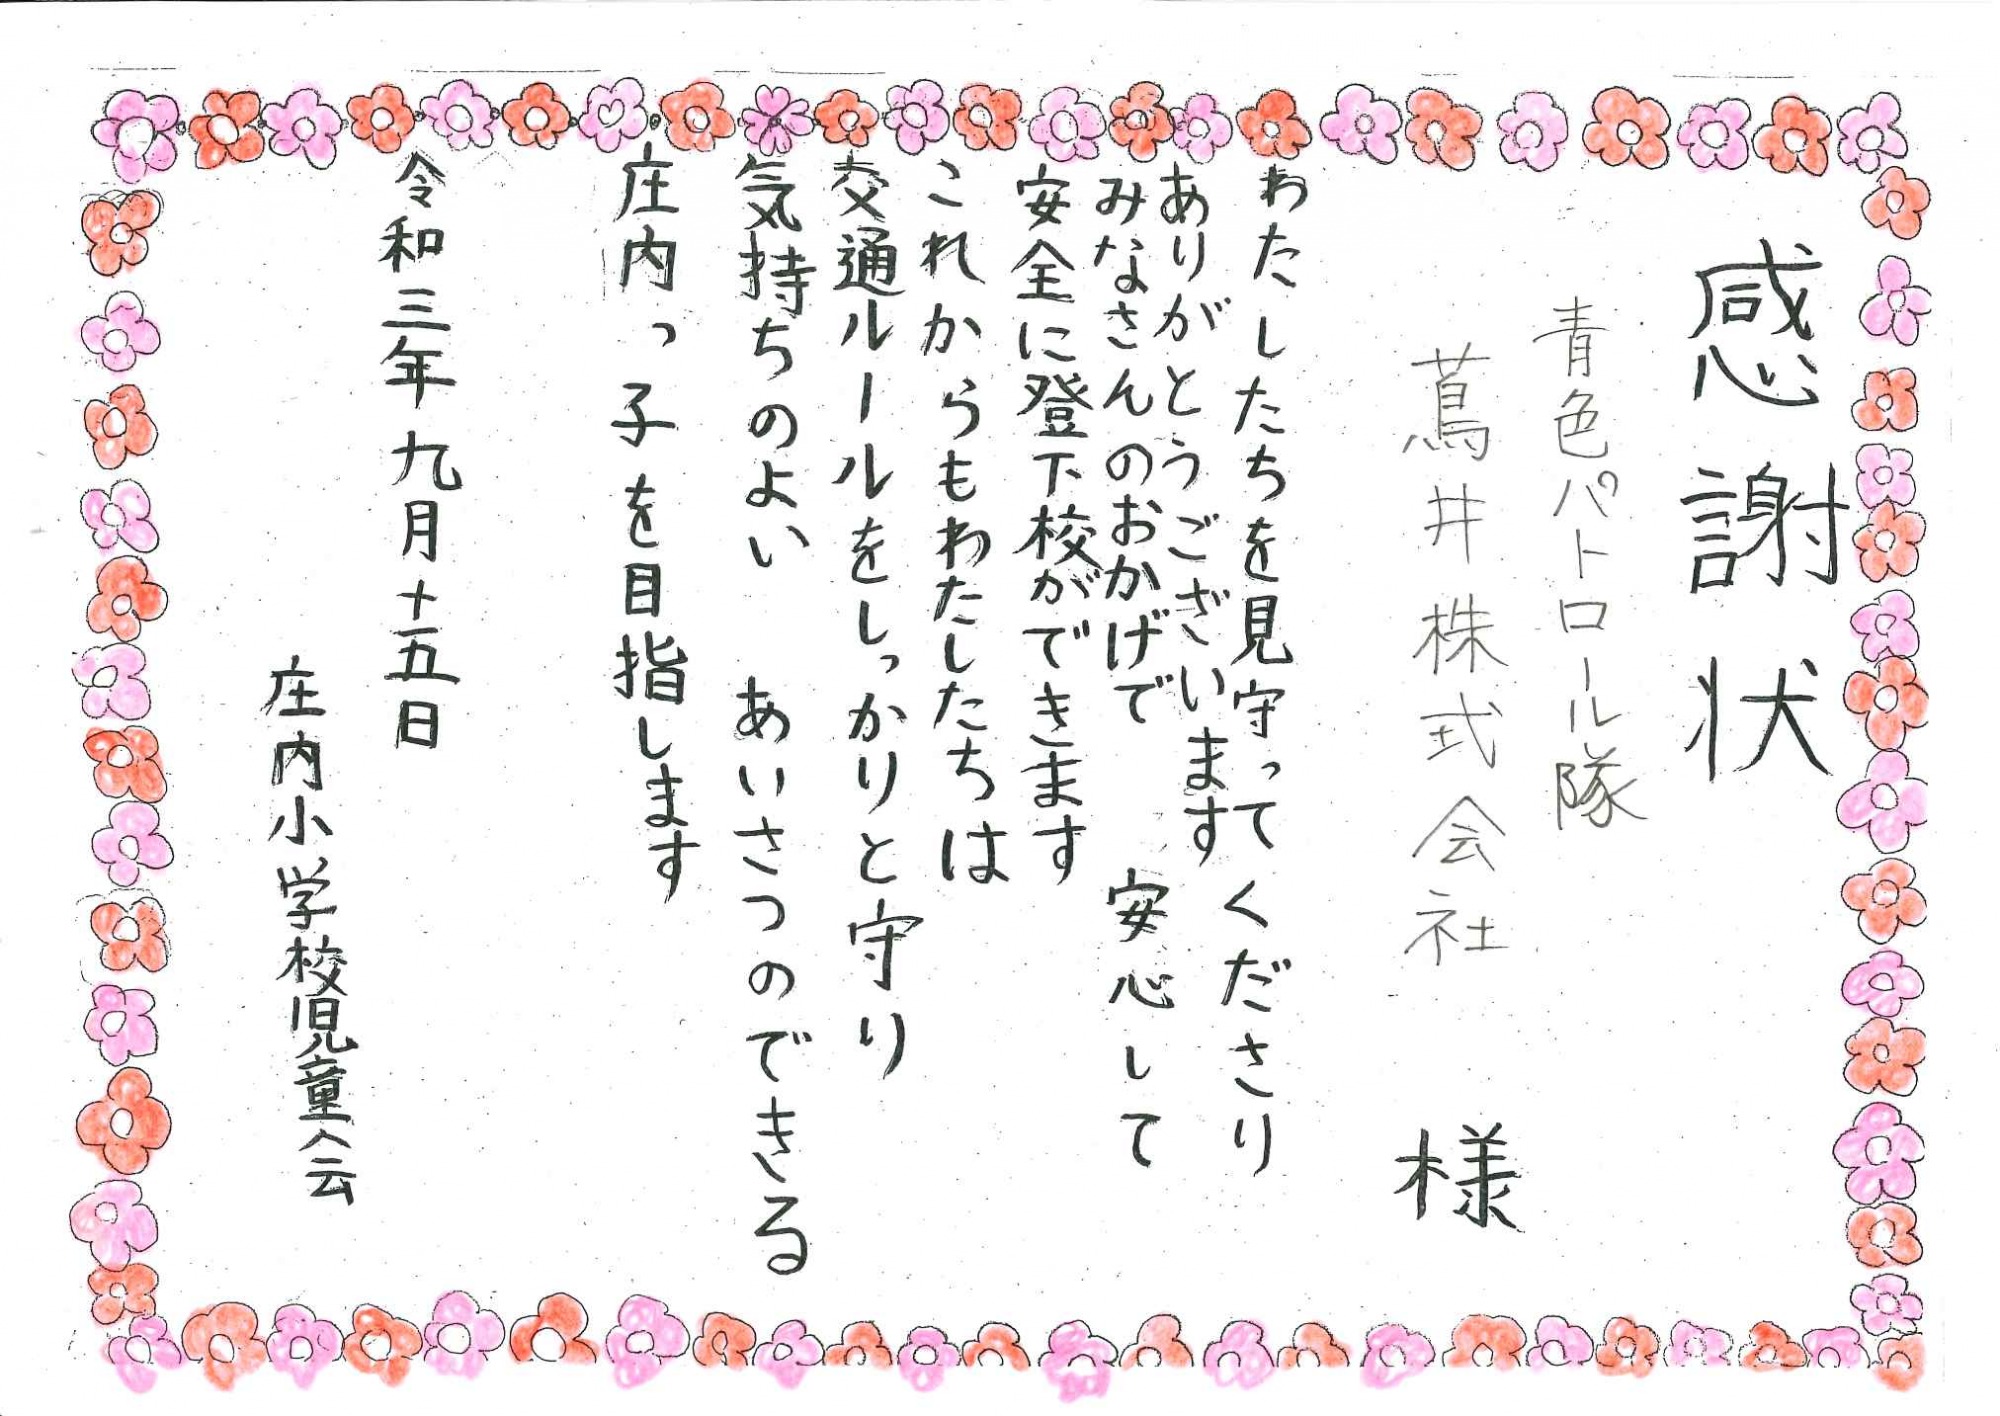 感謝状
青色パトロール隊
蔦井株式会社 様
わたしたちを見守ってくださり
ありがとうございます
みなさんのおかげで 安心して
安全に登下校ができます
これからもわたしたちは
交通ルールをしっかりと守り
気持ちのよい あいさつのできる
庄内っ子を目指します
令和三年九月十五日
庄内小学校児童会